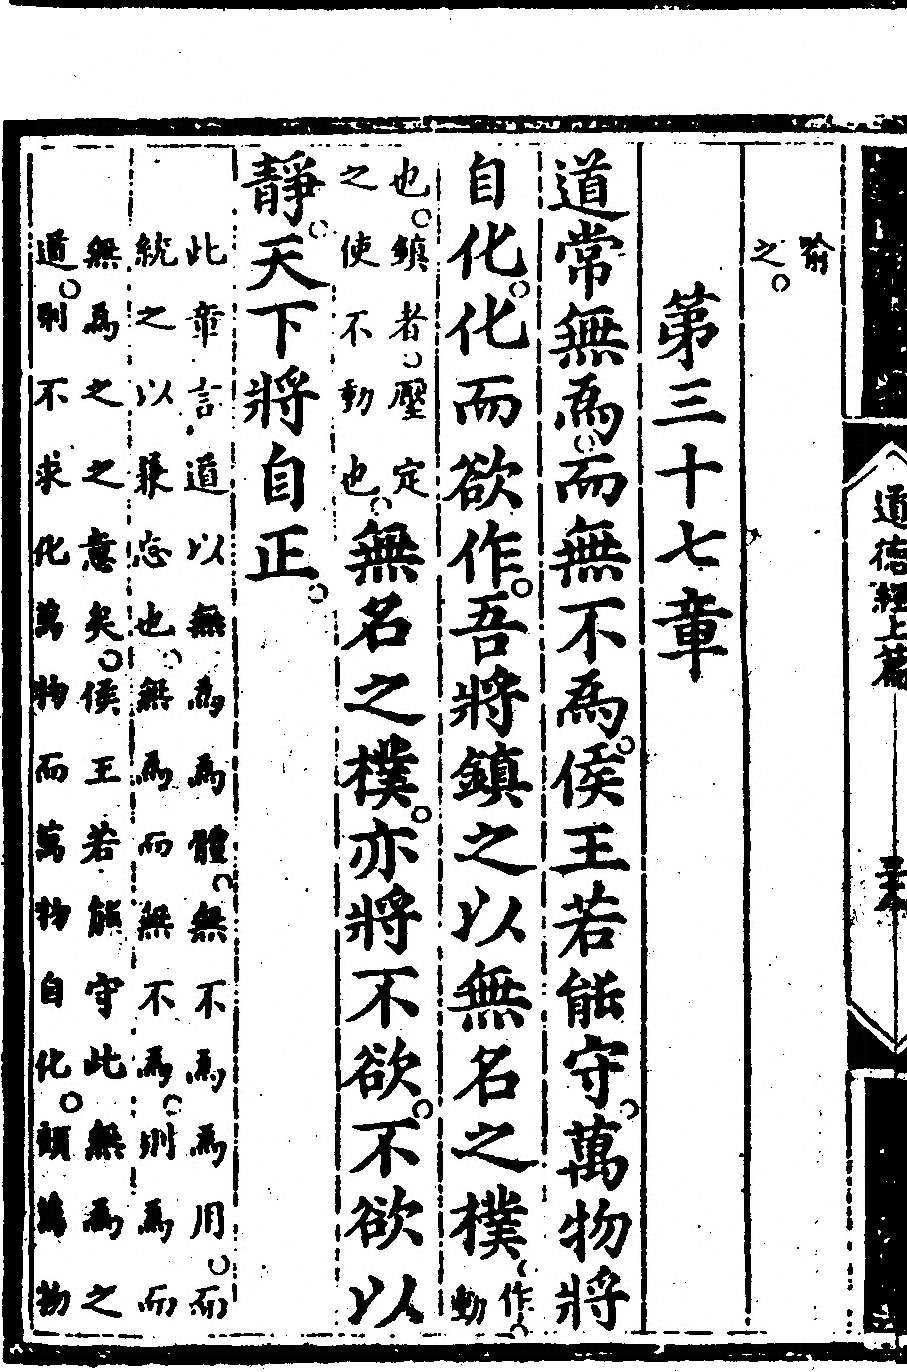 道德經上篇
喻
之。
第三十七章
道常無爲。而無不爲。侯王若能守。萬物將
自化。化而欲作。吾將鎮之以無名之樸。
作。
動
也。鎮者。壓定
之使不動也。
無名之樸。亦將不欲。不欲以
靜。天下將自正。
此章言道以無爲爲體。無不爲爲用。而
統之以兼忘也。無爲而無不爲。則爲而
無爲之之意矣。侯王若能守此無爲之
道。則不求化萬物而萬物自化。顧萬物